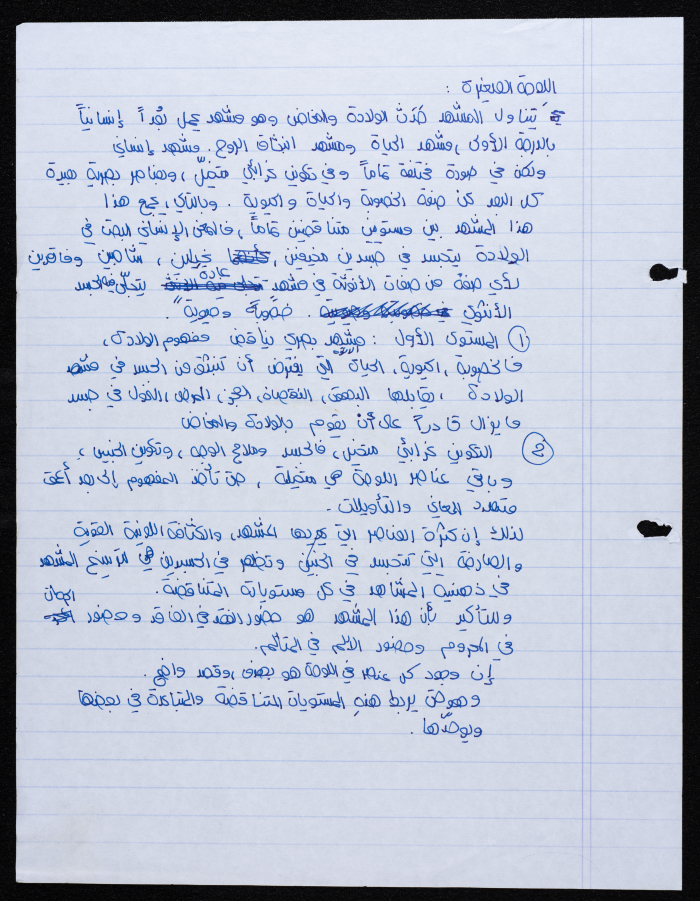 اللوحة الصغيرة :
يتناول المشهد حَدَث الولادة والمخاض وهو مشهد يحمل بُعداً إنسانياً
بالدرجة الأولى، مشهد الحياة ومشهد انبثاق الروح. مشهد إنساني
ولكن في صورة مختلفة تماماً وفي تكوين غرائبي متخيّل، وعناصر بصرية بعيدة
كل البعد عن صفة الخصوبة والحياة والحيوية. وبالتالي، يجمع هذا
المشهد بين مستويين متناقضين تماماً، فالمعنى الإنساني البحت في
الولادة يتجسد في جسدين نحيفين، هزيلين، شاحبين وفاقدين
لأي صفة من صفات الأنوثة في مشهد عادة يتجلّى فيه الجسد
الأنثوي خصوبةً وحيوية".
(1) المستوى الأول : مشهد بصري يناقض مفهوم الولادة،
فالخصوبة، الحيوية، الحياة التي يفترض أن تنبثق من الجسد في مشهد
الولادة، يقابلها النقصان، العجز، المرض، الذبول في جسد
ما يزال قادراً على أن يقوم بالولادة والمخاض
(2) التكوين غرائبي متخيّل، فالجسد وملامح الوجه، وتكوين الجنين،
وباقي عناصر اللوحة هي متخيلة، حتى تأخذ المفهوم إلى بعد أعمق
متعدد المعاني والتأويلات.
لذلك إن كثرة العناصر التي يحويها المشهد، والكثافة اللونية القوية
والصارخة التي تتجسد في الجنين وتظهر في الجسدين هي لترسيخ المشهد
في ذهنية المشاهد في كل مستوياته المتناقضة.
وللتأكيد بأن هذا المشهد هو حضور الفقد في الفاقد وحضور الحرمان
في المحروم وحضور الألم في المتألم.
إن وجود كل عنصر في اللوحة هو بهدف، وقصد واضح.
وهو من يربط هذه المستويات المتناقضة والمتباعدة في بعضها
ويوحّدها.